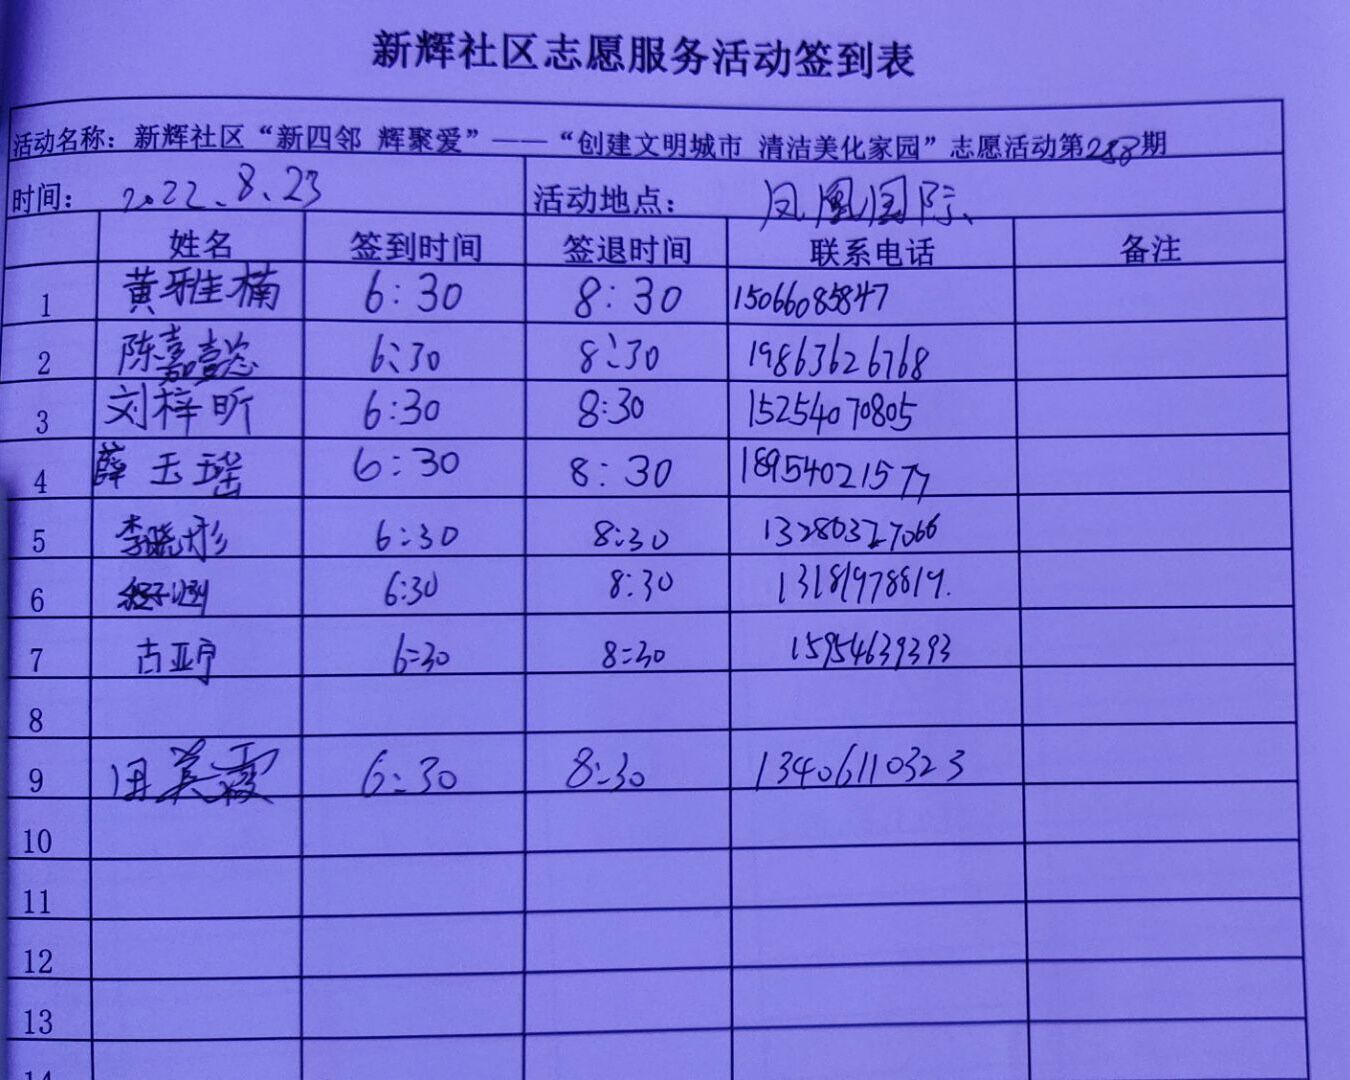 新辉社区志愿服务活动签到表
活动名称：新辉社区“新四邻 辉聚爱”——“创建文明城市 清洁美化家园”志愿活动第288期
时间： 2022.8.23 活动地点： 凤凰国际
姓名 签到时间 签退时间 联系电话 备注
1 黄雅楠 6:30 8:30 15066085847
2 陈嘉懿 6:30 8:30 19863626768
3 刘梓昕 6:30 8:30 15254070805
4 薛玉瑶 6:30 8:30 18954021577
5 李晓彤 6:30 8:30 13280327066
6 6:30 8:30 13181978819.
7 古亚宁 6:30 8:30 15954639393
8
9 田美霞 6:30 8:30 13406110323
10
11
12
13
14